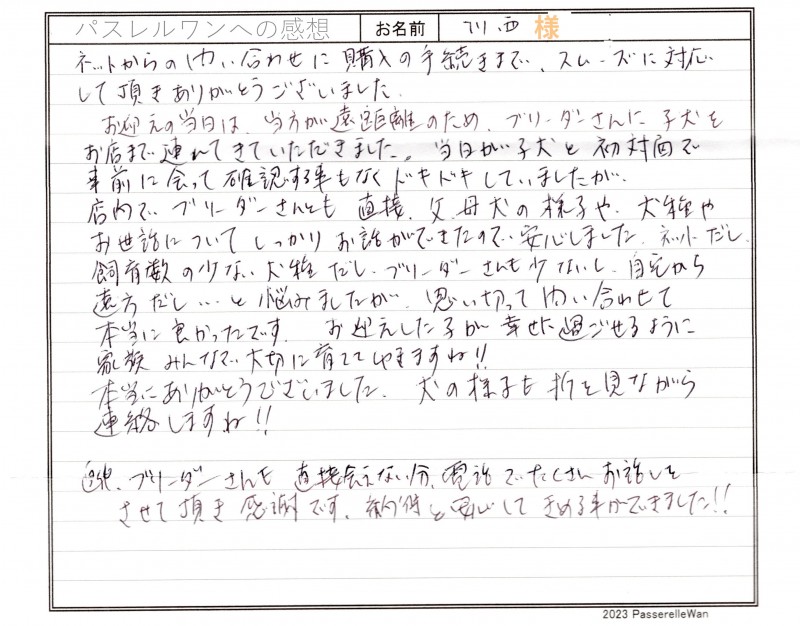 パスレルワンへの感想 お名前 川西 様
ネットからの問い合わせに購入の手続きまで、スムーズに対応
して頂きありがとうございました。
お迎えの当日は、当方が遠距離のため、ブリーダーさんに子犬を
お店まで連れてきていただきました。当日が子犬と初対面で
事前に会って確認する事もなくドキドキしていましたが、
店内で ブリーダーさんとも 直接、父母犬の様子や、犬種や
お世話について しっかり お話ができたので 安心しました。ネットだし、
飼育数の少ない犬種だし、ブリーダーさんも少ないし、自宅から
遠方だし…と悩みましたが、思い切って問い合わせて
本当に良かったです。 お迎えした子が 幸せに過ごせるように
家族みんなで大切に育てていきますね!!
本当にありがとうございました。 犬の様子も 折を見ながら
連絡しますね!!
追伸、ブリーダーさんも 直接会えない分、電話でたくさんお話しを
させて頂き 感謝です、納得と安心して きめる事ができました!!
2023 PasserelleWan